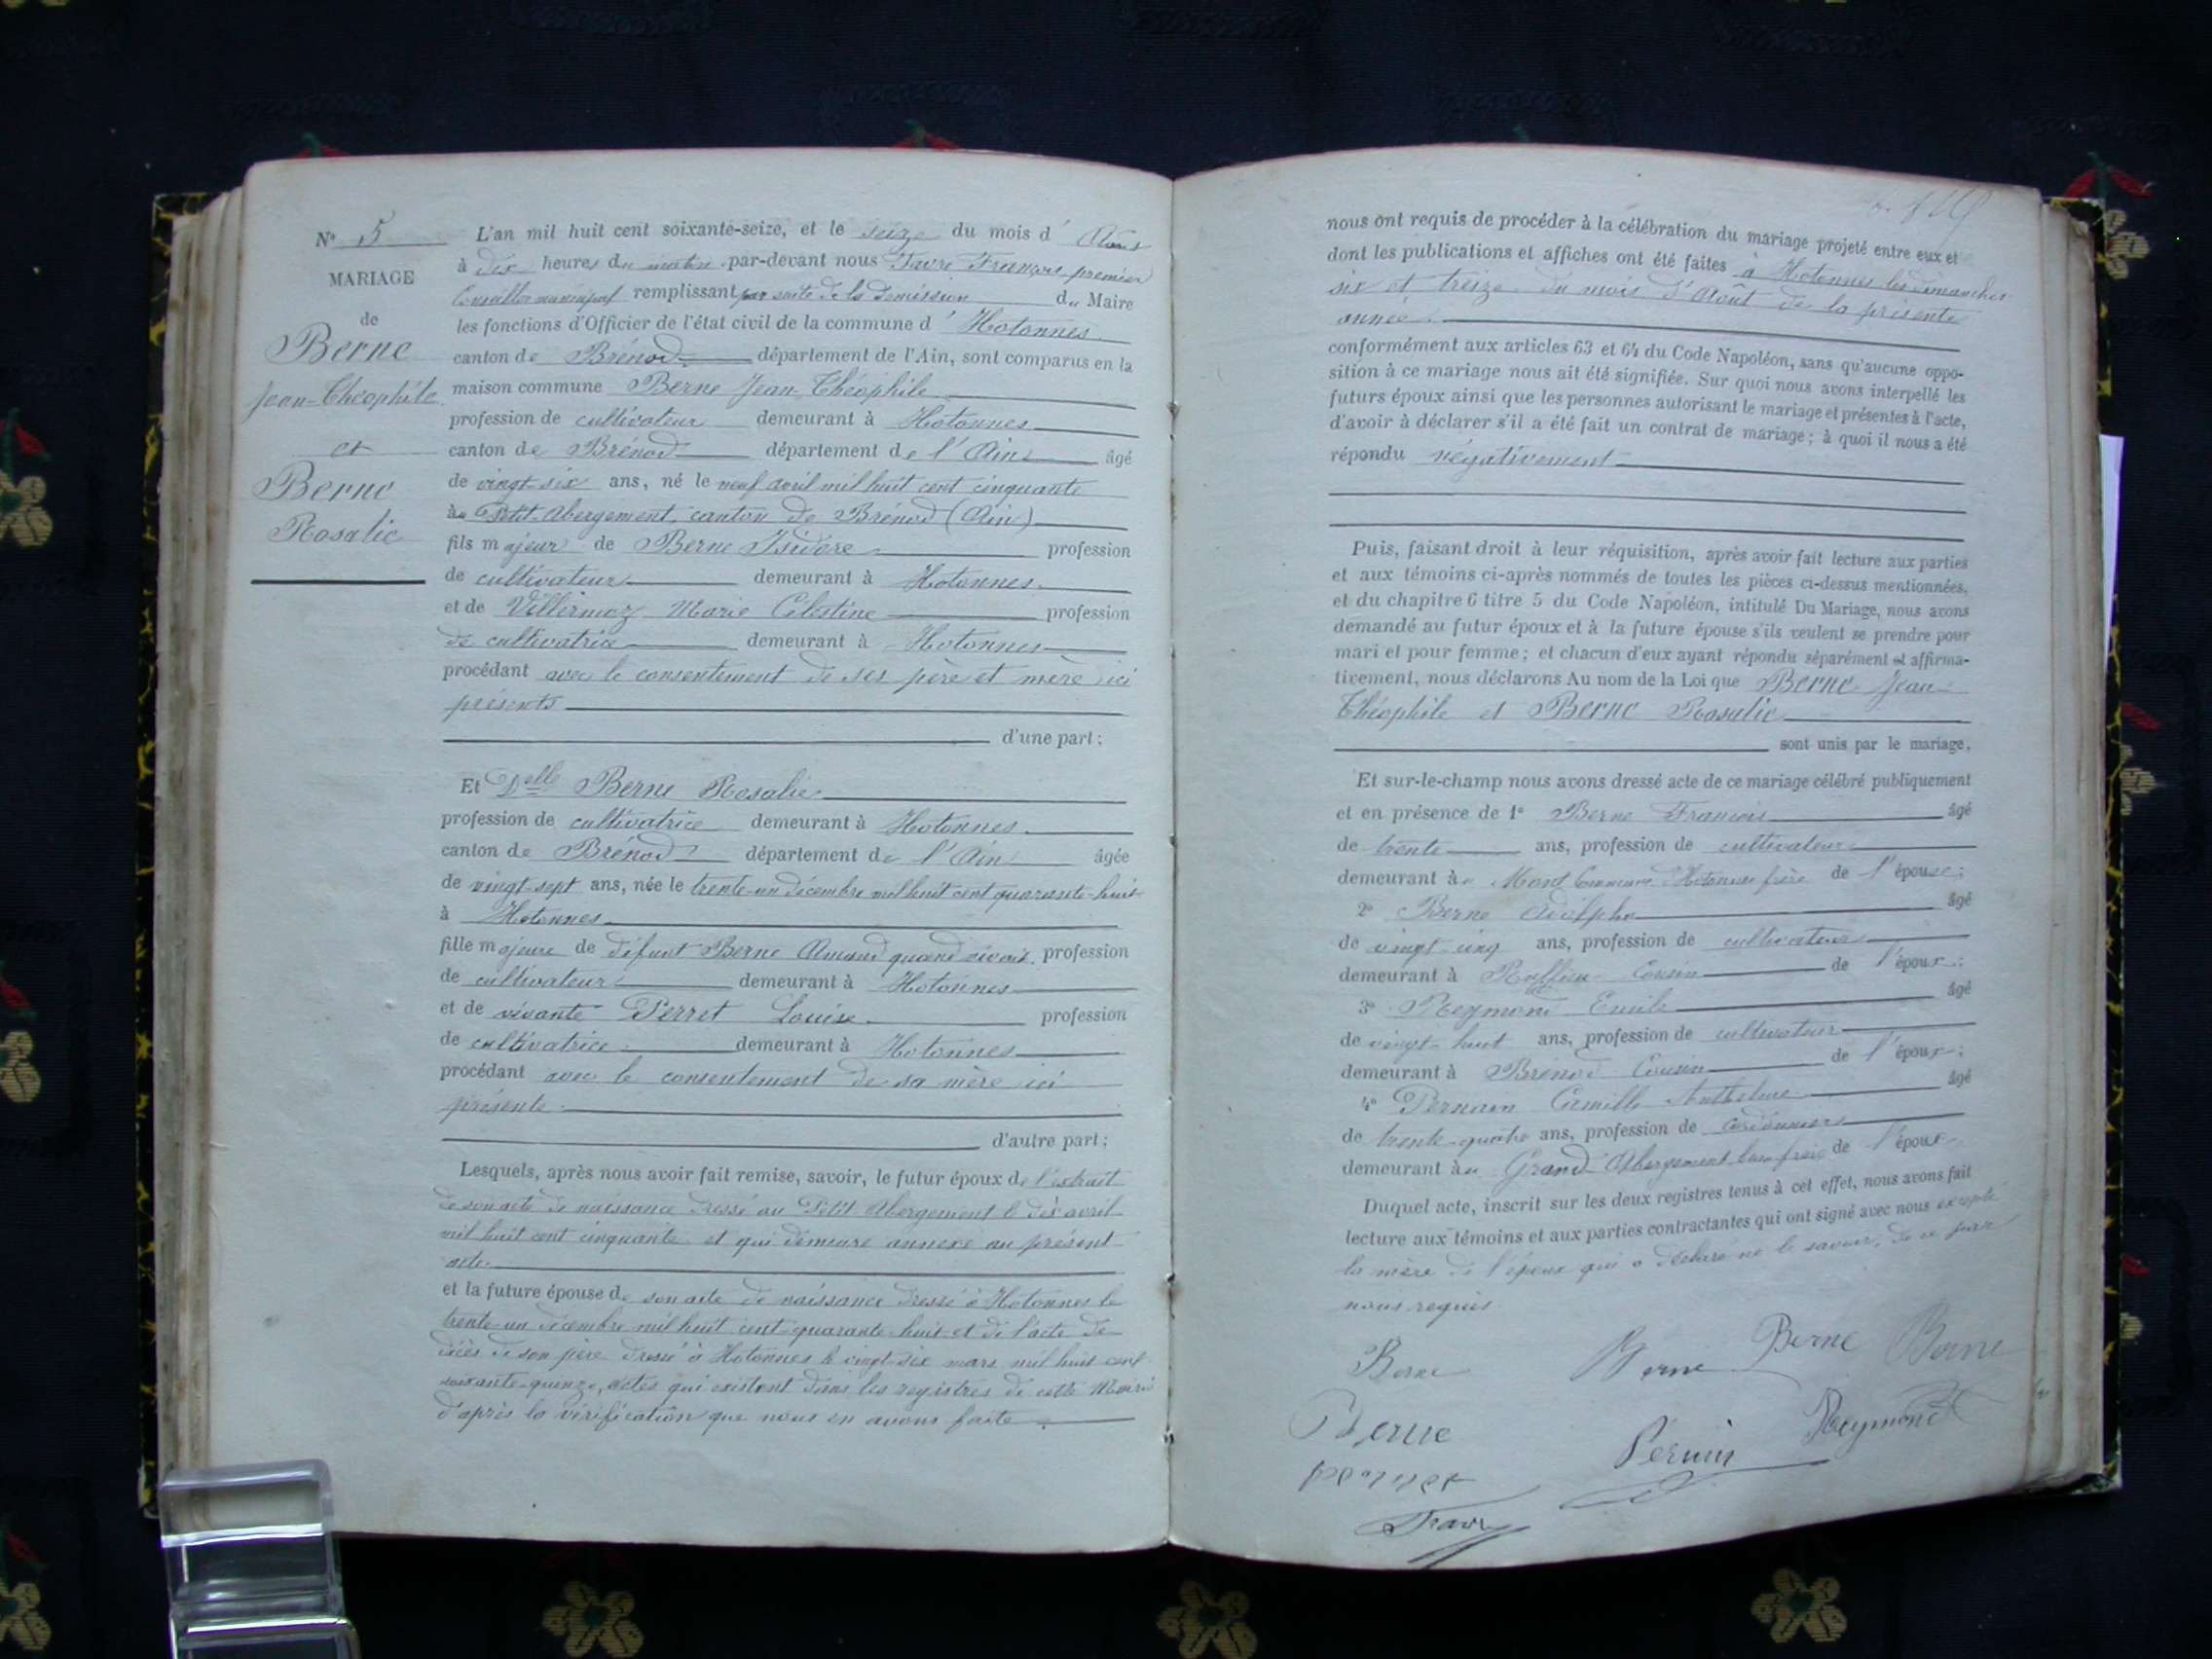 N° 5
MARIAGE
de
Berne
Jean-Théophile
et
Berne
Rosalie
L'an mil huit cent soixante-seize, et le seize du mois d' Août
à dix heures du matin par-devant nous Favre François premier
Conseiller municipal remplissant par suite de la démission du Maire
les fonctions d'Officier de l'état civil de la commune d' Hotonnes
canton de Brénod département de l'Ain, sont comparus en la
maison commune Berne Jean-Théophile
profession de cultivateur demeurant à Hotonnes
canton de Brénod département de l'Ain âgé
de vingt-six ans, né le neuf avril mil huit cent cinquante
au Petit-Abergement, canton de Brénod (Ain)
fils majeur de Berne Isidore profession
de cultivateur demeurant à Hotonnes
et de Villermoz Marie Célestine profession
de cultivatrice demeurant à Hotonnes
procédant avec le consentement de ses père et mère ici
présents
d'une part;
Et Delle Berne Rosalie
profession de cultivatrice demeurant à Hotonnes
canton de Brénod département de l'Ain âgée
de vingt-sept ans, née le trente-un décembre mil huit cent quarante-huit
à Hotonnes
fille majeure de défunt Berne Amand quand vivait profession
de cultivateur demeurant à Hotonnes
et de vivante Perret Louise profession
de cultivatrice demeurant à Hotonnes
procédant avec le consentement de sa mère ici
présente
d'autre part;
Lesquels, après nous avoir fait remise, savoir, le futur époux de l'extrait
de son acte de naissance dressé au Petit Abergement le dix avril
mil huit cent cinquante et qui demeure annexé au présent
acte
et la future épouse de son acte de naissance dressé à Hotonnes le
trente-un décembre mil huit cent quarante-huit et de l'acte de
décès de son père dressé à Hotonnes le vingt-six mars mil huit cent
soixante-quinze, actes qui existent dans les registres de cette Mairie
d'après la vérification que nous en avons faite
nous ont requis de procéder à la célébration du mariage projeté entre eux et
dont les publications et affiches ont été faites à Hotonnes les dimanches
six et treize du mois d'Août de la présente
année
conformément aux articles 63 et 64 du Code Napoléon, sans qu'aucune oppo-
sition à ce mariage nous ait été signifiée. Sur quoi nous avons interpellé les
futurs époux ainsi que les personnes autorisant le mariage et présentes à l'acte,
d'avoir à déclarer s'il a été fait un contrat de mariage; à quoi il nous a été
répondu négativement
Puis, faisant droit à leur réquisition, après avoir fait lecture aux parties
et aux témoins ci-après nommés de toutes les pièces ci-dessus mentionnées,
et du chapitre 6 titre 5 du Code Napoléon, intitulé Du Mariage, nous avons
demandé au futur époux et à la future épouse s'ils veulent se prendre pour
mari et pour femme; et chacun d'eux ayant répondu séparément et affirma-
tivement, nous déclarons Au nom de la Loi que Berne Jean-
Théophile et Berne Rosalie
sont unis par le mariage.
Et sur-le-champ nous avons dressé acte de ce mariage célébré publiquement
et en présence de 1° Berne François âgé
de trente ans, profession de cultivateur
demeurant à Mont Commune d'Hotonnes frère de l'épouse;
2° Berne Adolphe âgé
de vingt-cinq ans, profession de cultivateur
demeurant à Ruffieu Cousin de l'époux;
3° Reymond Emile âgé
de vingt-huit ans, profession de cultivateur
demeurant à Brénod Cousin de l'époux;
4° Camille Anthelme âgé
de trente-quatre ans, profession de cordonnier
demeurant au Grand Abergement beau frère de l'époux
Duquel acte, inscrit sur les deux registres tenus à cet effet, nous avons fait
lecture aux témoins et aux parties contractantes qui ont signé avec nous excepté
la mère de l'époux qui a déclaré ne le savoir, de ce par
nous requis
Berne Berne Berne Berne
Berne Reymond
Favre